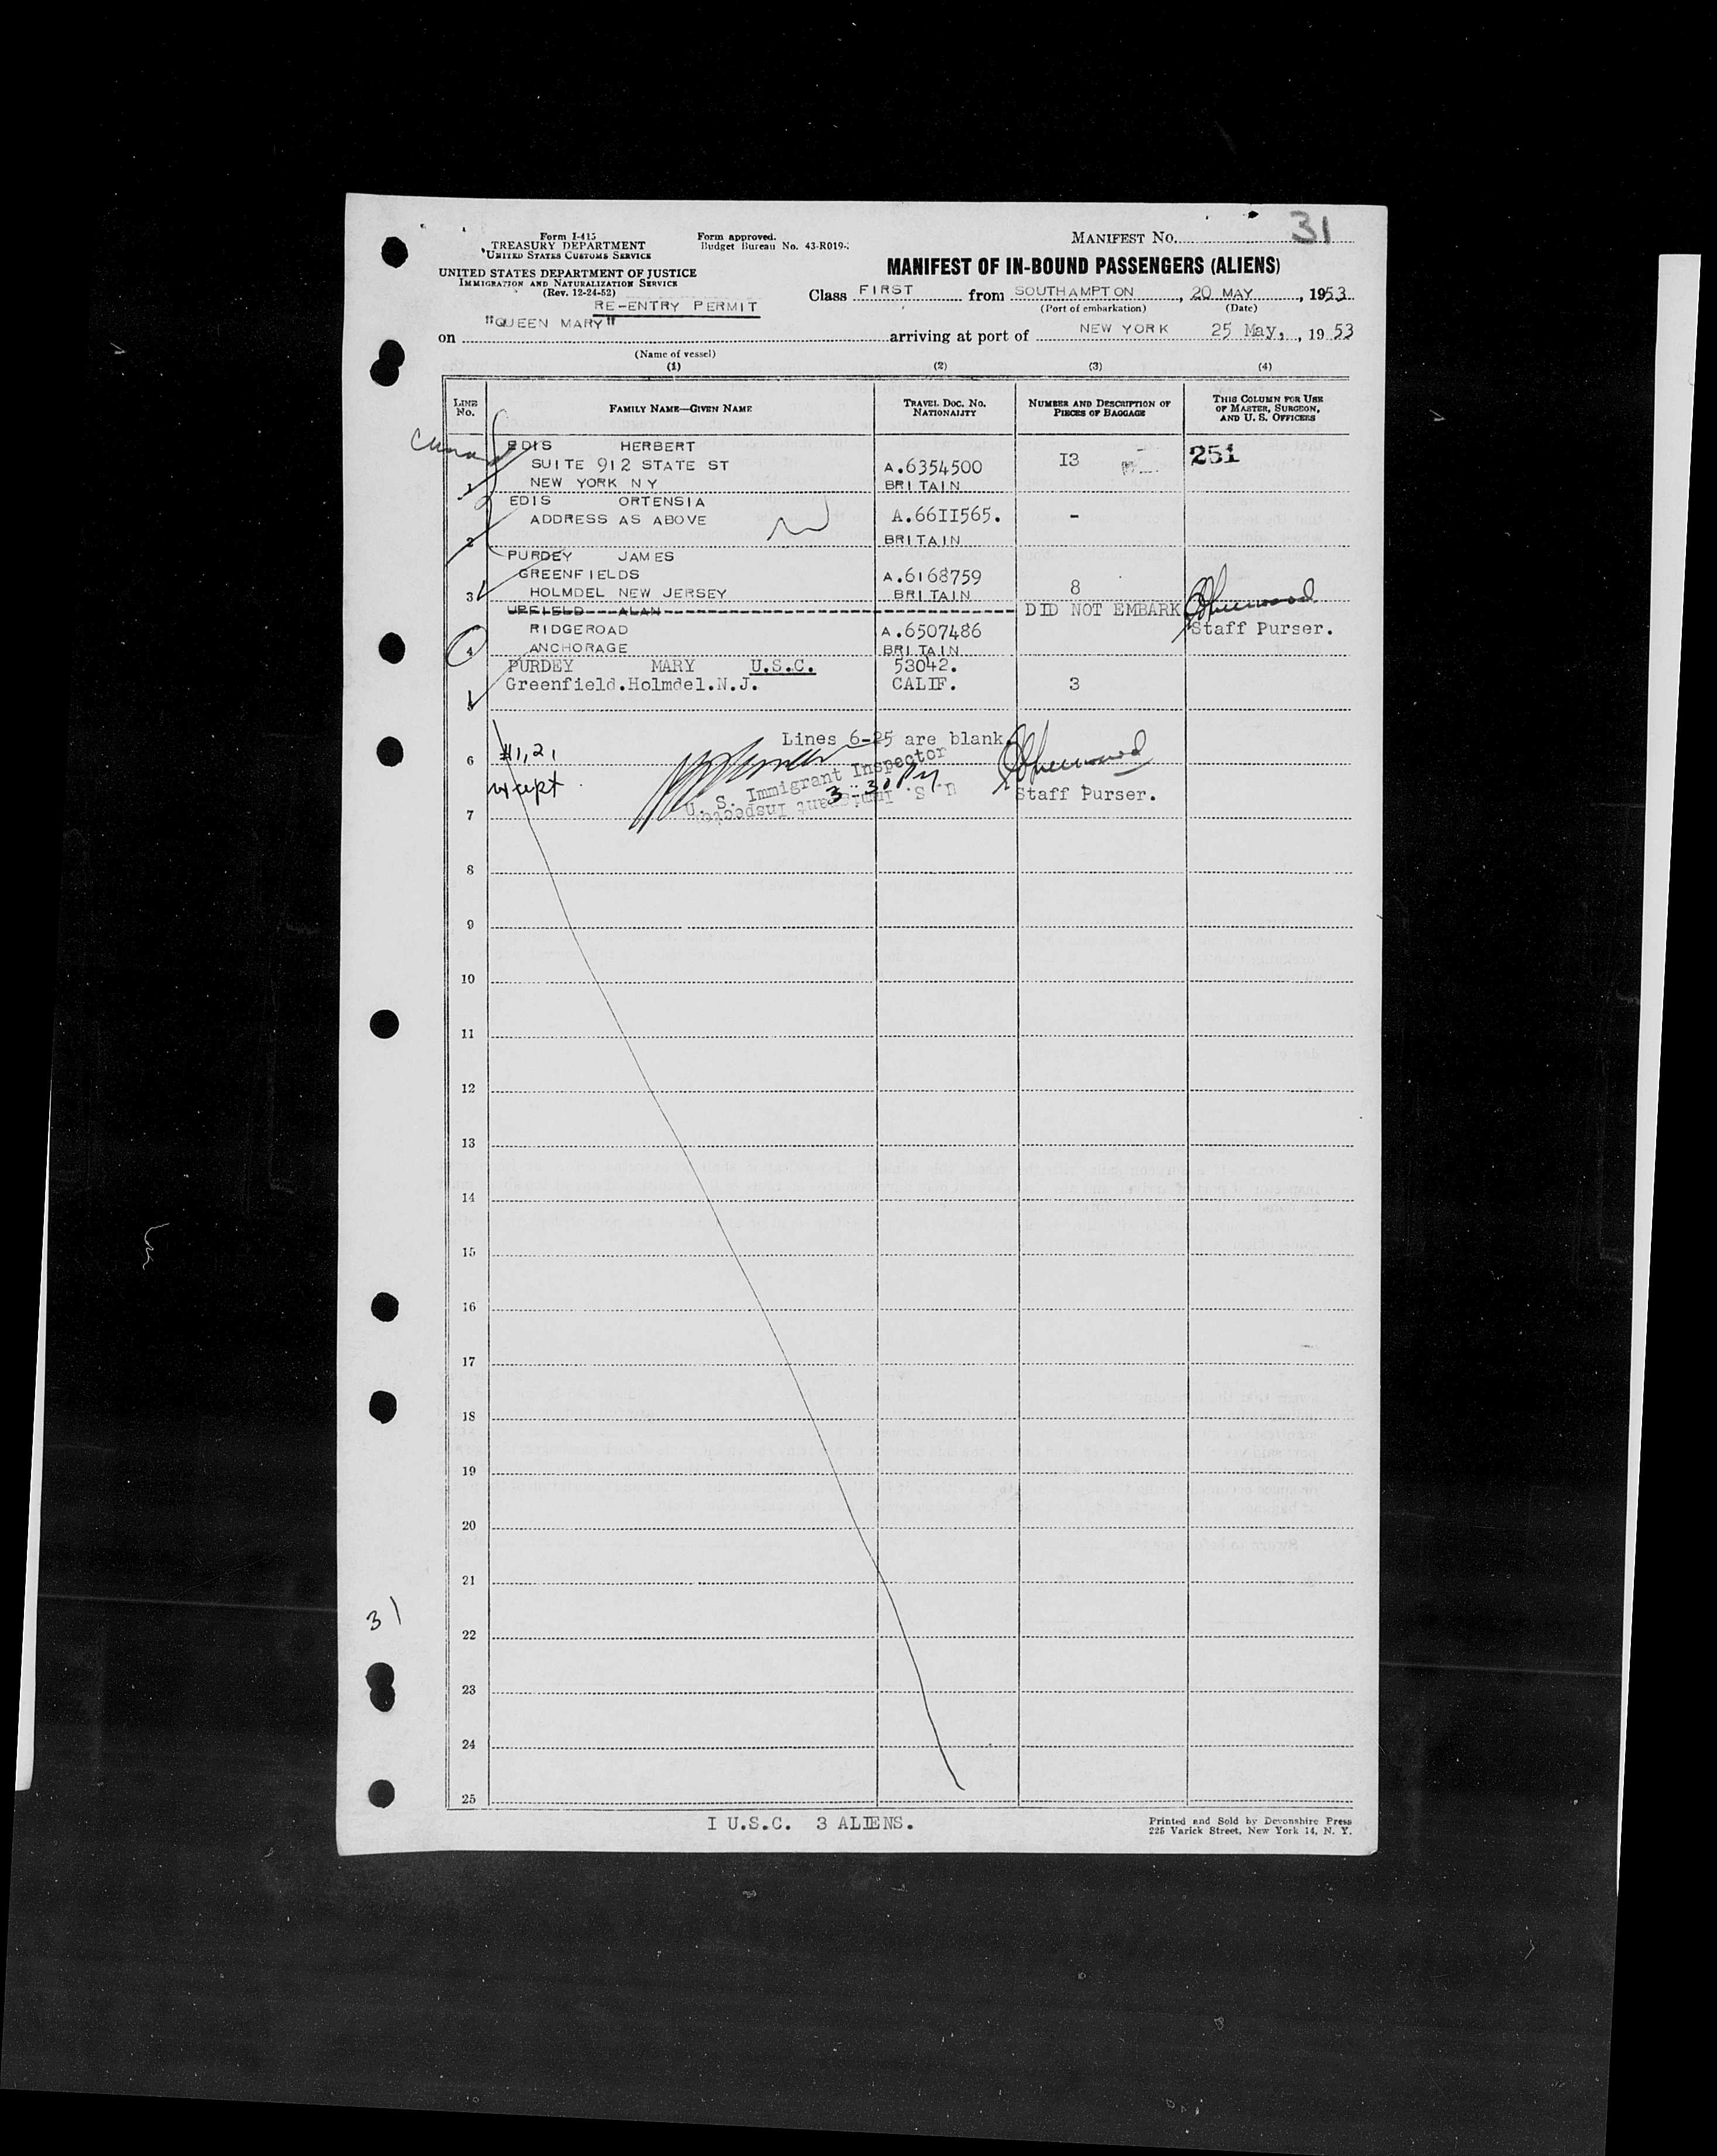 Form I-415
TREASURY DEPARTMENT
UNITED STATES CUSTOMS SERVICE
UNITED STATES DEPARTMENT OF JUSTICE
IMMIGRATION AND NATURALIZATION SERVICE
(Rev. 12-24-52)
Form approved.
Budget Bureau No. 43-R019-
MANIFEST No. 31
MANIFEST OF IN-BOUND PASSENGERS (ALIENS)
RE-ENTRY PERMIT
Class FIRST from SOUTHAMPTON, 20 MAY, 1953
(Port of embarkation) (Date)
on "QUEEN MARY" arriving at port of NEW YORK 25 May, , 19 53
(Name of vessel)
(1) (2) (3) (4)
LINE No. FAMILY NAME—GIVEN NAME TRAVEL DOC. No. NATIONALITY NUMBER AND DESCRIPTION OF PIECES OF BAGGAGE THIS COLUMN FOR USE OF MASTER, SURGEON, AND U. S. OFFICERS
EDIS HERBERT
SUITE 912 STATE ST A.6354500 I3 251
1 NEW YORK N Y BRITAIN
EDIS ORTENSIA
ADDRESS AS ABOVE A.66II565. -
2 BRITAIN
PURDEY JAMES
GREENFIELDS A.6168759
3 HOLMDEL NEW JERSEY BRITAIN 8
UPFIELD ALAN DID NOT EMBARK
RIDGEROAD A.6507486 Staff Purser.
4 ANCHORAGE BRITAIN
PURDEY MARY U.S.C. 53042.
Greenfield.Holmdel.N.J. CALIF. 3
5
Lines 6-25 are blank
#1, 2,
6
U. S. Immigrant Inspector
3:30 PM
U. S. Immigrant Inspector
Staff Purser.
7
8
9
10
11
12
13
14
15
16
17
18
19
20
21
31
22
23
24
25
I U.S.C. 3 ALIENS.
Printed and Sold by Devonshire Press
225 Varick Street, New York 14, N. Y.